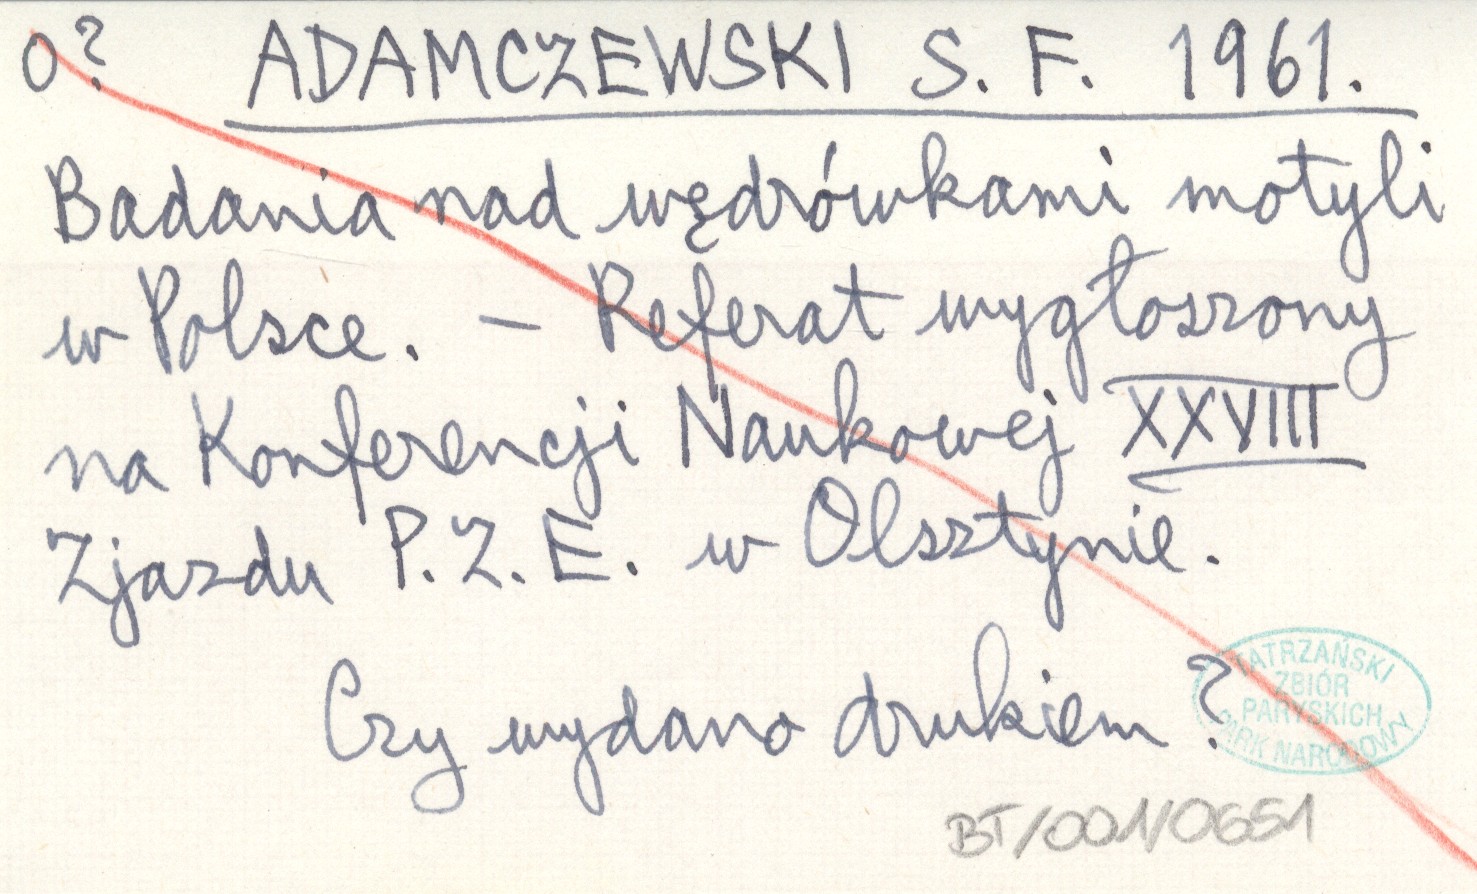 O? ADAMCZEWSKI S. F. 1961.
Badania nad wędrówkami motyli
w Polsce. – Referat wygłoszony
na Konferencji Naukowej XXVIII
Zjazdu P.Z.E. w Olsztynie.
Czy wydano drukiem?
TATRZAŃSKI
ZBIÓR
PARYSKICH
PARK NARODOWY
BT/001/0651